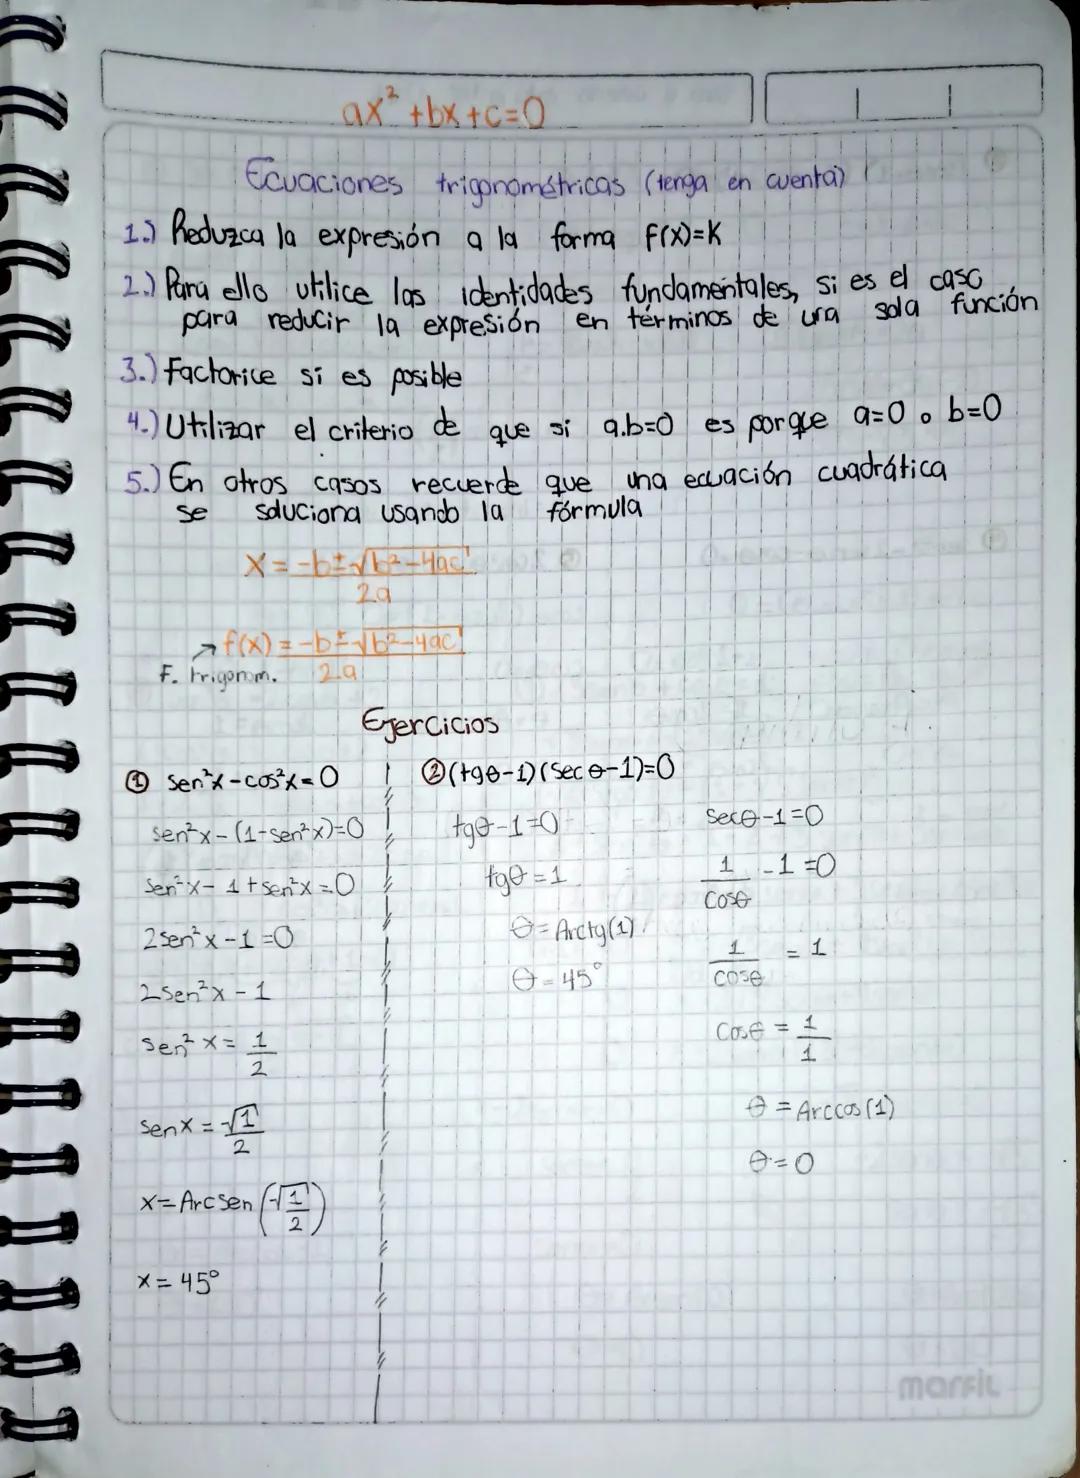 ax² + bx + c = 0
Ecuaciones trigonométricas (tenga en cuenta)
1.) Reduzca la expresión a la forma f(x)=K
2.) Para ello utilice las identidades fundamentales, si es el caso
para reducir la expresión en términos de una sola función
3.) factorice si es posible
4.) Utilizar el criterio de que si a.b=0 es porque a=0 o b=0
5.) En otros casos recuerde que una ecuación cuadrática
se soluciona usando la fórmula
X = -b ± √b² - 4ac
2a
→ f(x) = -b ± √b² - 4ac
F. trigonom. 2a
Ejercicios
① sen²x - cos²x = 0
sen²x - (1 - sen²x) = 0
sen²x - 1 + sen²x = 0
2sen²x - 1 = 0
2sen²x - 1
sen²x = 1/2
senx = √1/2
x = Arcsen (√1/2)
x = 45°
② (tgθ-1)(secθ-1)=0
tgθ - 1 = 0
tgθ = 1
θ = Arctg(1)
θ = 45°
secθ - 1 = 0
1/cosθ - 1 = 0
1/cosθ = 1
Cosθ = 1/1
θ = Arccos(1)
θ = 0
marfil